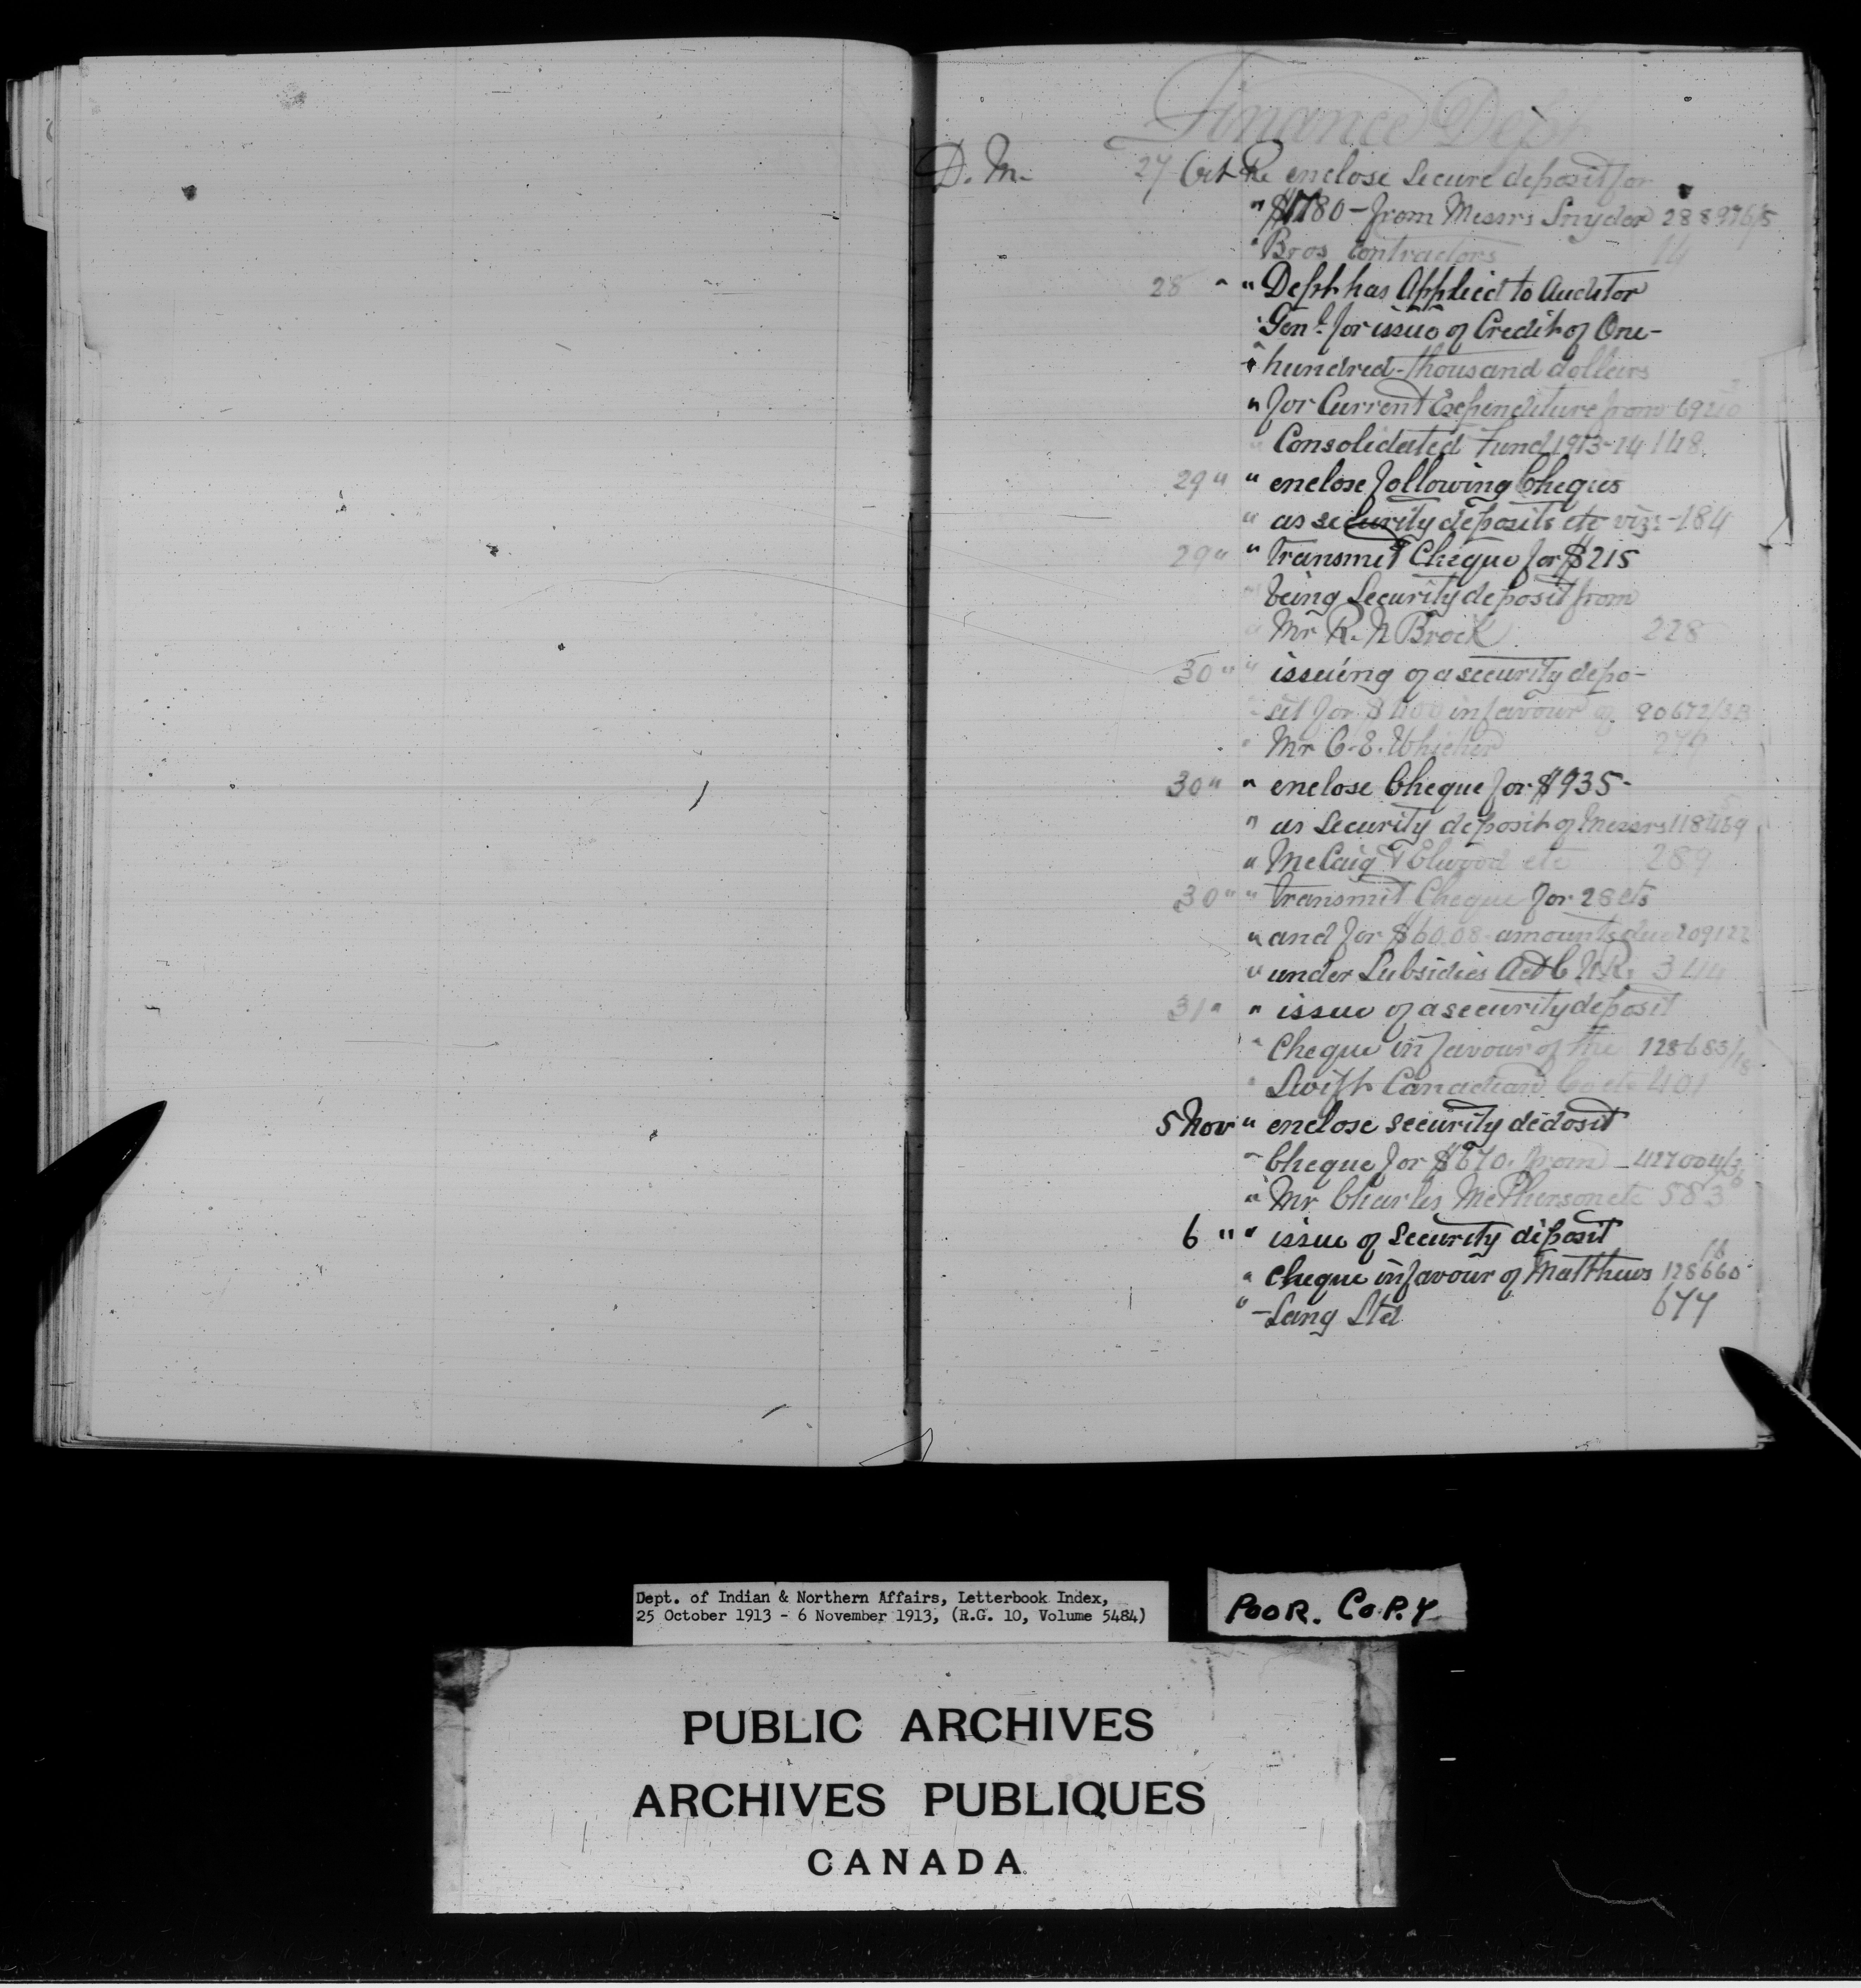 Finance Dept
D. M. 27 Oct Re enclose Secure deposit for
" $1780 - from Messrs Snyder 288976/5
" Bros contractors 14
28 " " Dept has Applied to Auditor
" Genl. for issue of Credit of One-
" hundred-thousand dollars
" for Current Expenditure from
" Consolidated Fund 1913-14 148
29 " " enclose following Cheques
" as security deposits etc viz:- 184
29 " " transmit Cheque for $215
" being Security deposit from
" Mr R. N Brock 228
30 " " issuing of a security depo-
" sit for $400 in favour of 90672/3B
" Mr C. E. Whicher 274
30 " " enclose Cheque for $935-
" as Security deposit of Messrs
" McCaig & Elwood etc 289
30 " " transmit Cheque for 28 cts
" and for $60.08 amounts due 209122
" under Subsidies Act C.N.R. 344
31 " " issue of a security deposit
" Cheque in favour of the 128683/18
" Swift Canadian Co etc 401
5 Nov " enclose security dedosit
" Cheque for $670. from
" Mr Charles McPherson etc 583
6 " " issue of Security deposit
" Cheque in favour of Matthews 128660 18
" - Lang Ltd 677
Dept. of Indian & Northern Affairs, Letterbook Index,
25 October 1913 - 6 November 1913, (R.G. 10, Volume 5484)
POOR. COPY
PUBLIC ARCHIVES
ARCHIVES PUBLIQUES
CANADA